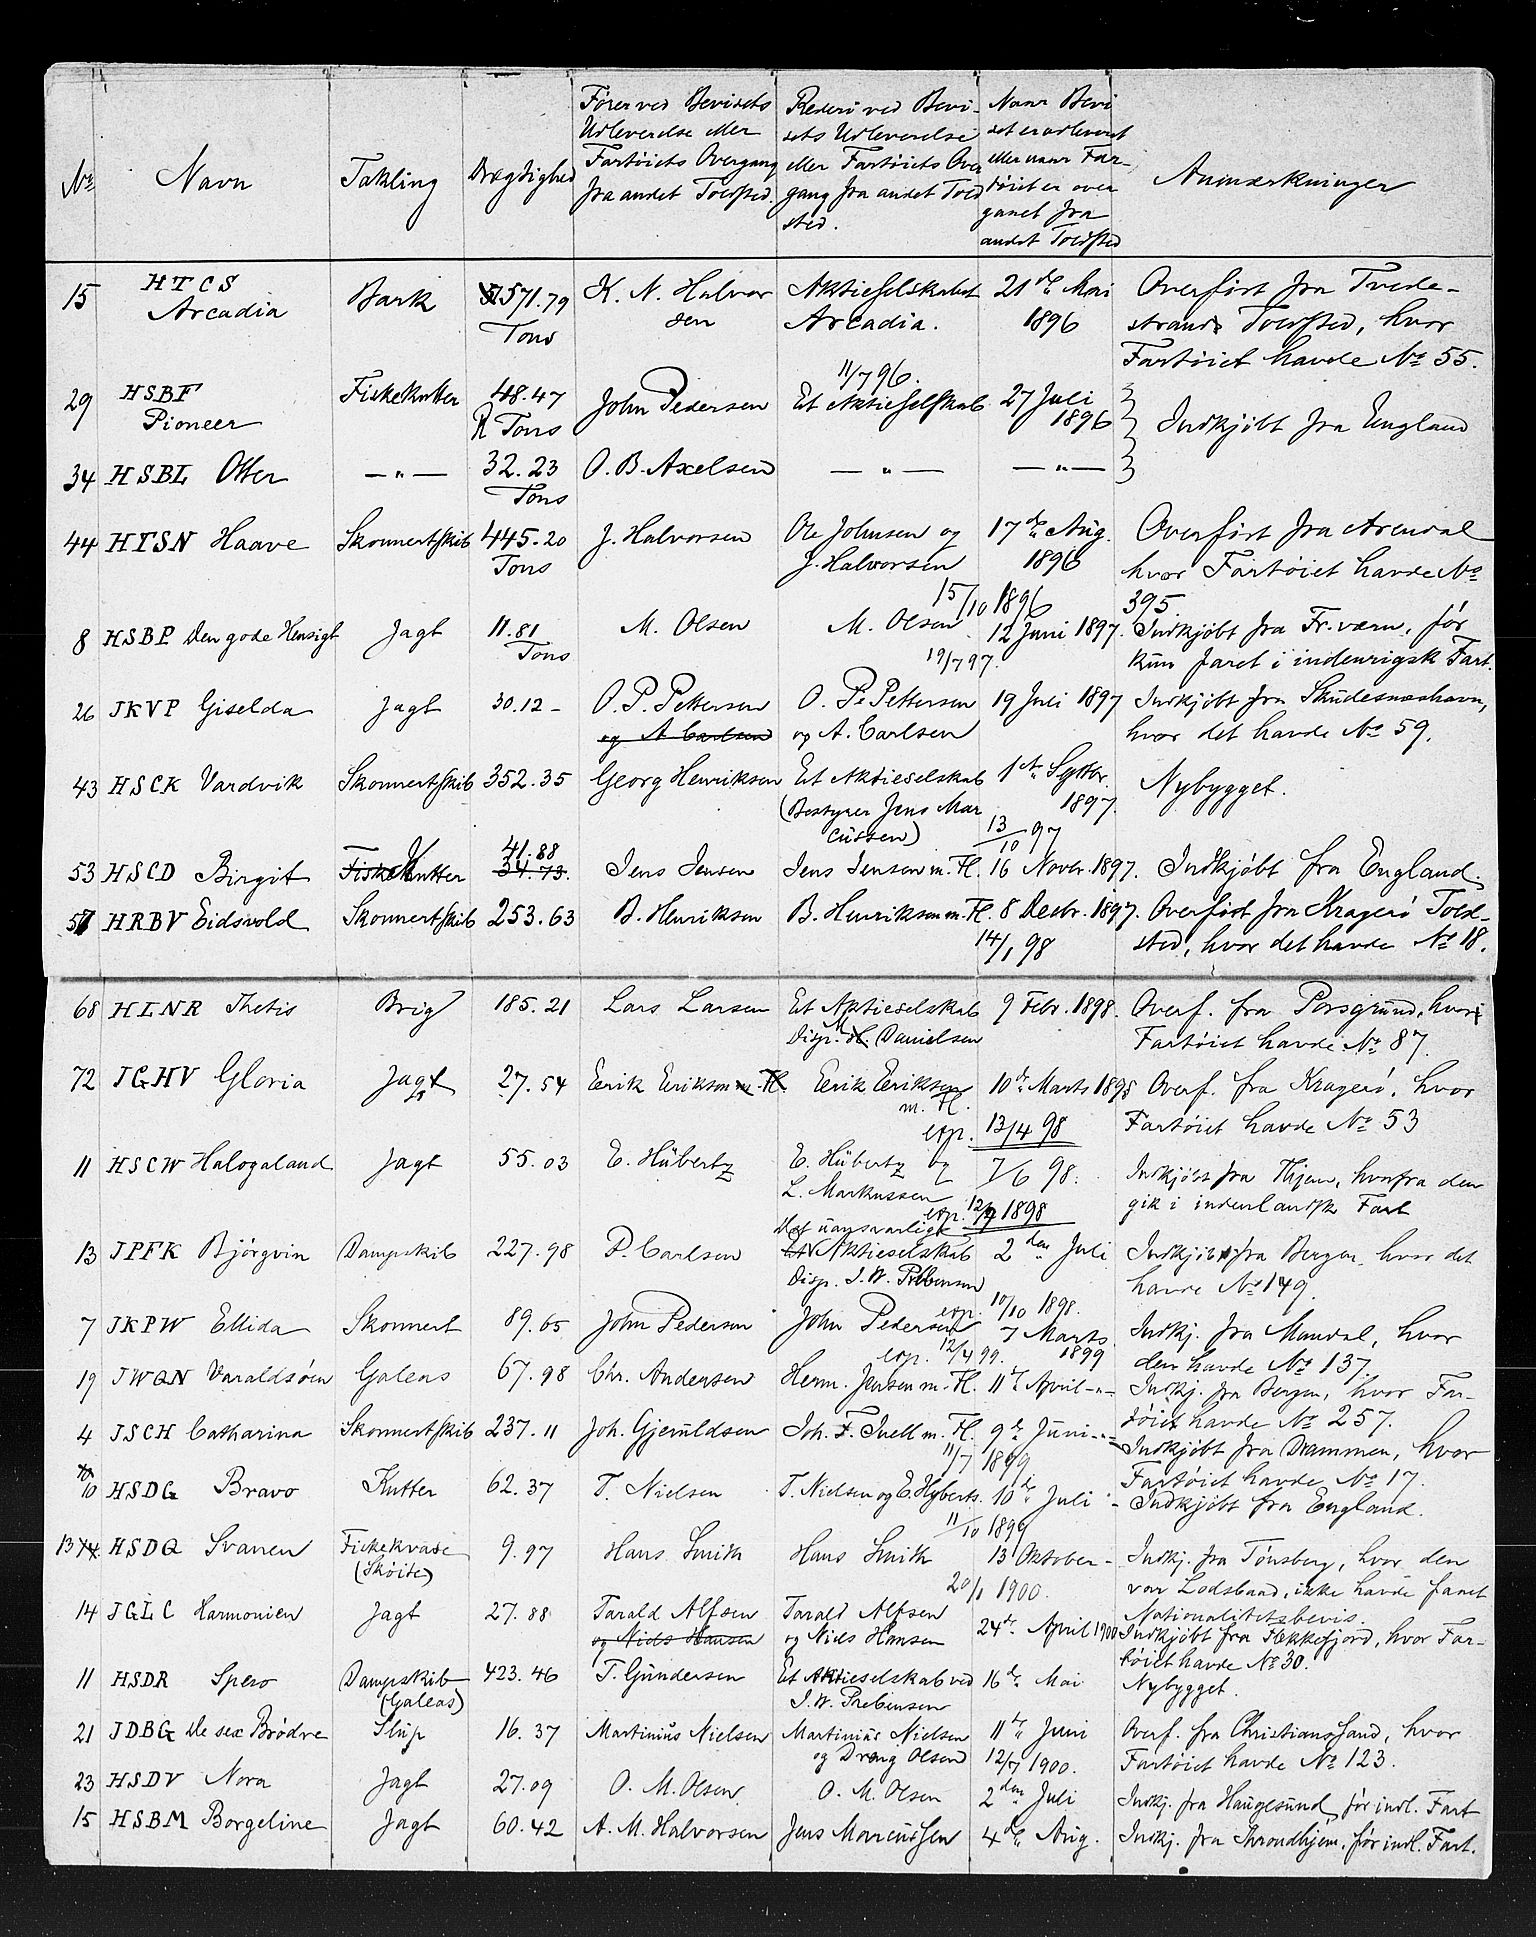 No Navn Takling Drægtighed Fører ved Bevisets Udleverelse eller Fartøiets Overgang fra andet Toldsted. Rederi ved Bevisets Udleverelse eller Fartøiets Overgang fra andet Toldsted. Naar Beviset er udleveret eller naar Fartøiet er overgaaet fra andet Toldsted Anmærkninger
15 HTCS Arcadia Bark 571.79 Tons K. N. Halvorsen Aktieselskabet Arcadia. 21de Mai 1896 Overført fra Tvede-
strands Toldsted, hvor
Fartøiet havde No 55.
11/7 96.
29 HSBF Pioneer Fiskekutter 48.47 R Tons John Pedersen Et Aktieselskab 27 Juli 1896 Indkjøbt fra England
34 HSBL Otter —"— 32.23 Tons O. B. Axelsen —"— —"—
44 HTSN Haave Skonnertskib 445.20 Tons J. Halvorsen Ole Johnsen og J. Halvorsen 17de Aug. 1896 Overført fra Arendal
hvor Fartøiet havde No
395.
15/10 1896
8 HSBP Den gode Hensigt Jagt 11.81 Tons M. Olsen M. Olsen 12 Juni 1897. Indkjøbt fra Fr.værn, før
kun faret i indenrigsk Fart.
19/7 97.
26 JKVP Giselda Jagt 30.12 - O. P. Pettersen og A. Carlsen O. P. Pettersen og A. Carlsen 19 Juli 1897 Indkjøbt fra Skudesneshavn,
hvor det havde No 59.
43 HSCK Vardvik Skonnertskib 352.35 Georg Henriksen Et Aktieselskab (Bestyrer Jens Marcussen) 1ste Septbr. 1897. Nybygget.
13/10 97
53 HSCD Birgit Fiskekutter 41.88 34.73. Jens Jensen Jens Jensen m. Fl. 16 Novbr. 1897. Indkjøbt fra England.
57 HRBV Eidsvold Skonnertskib 253.63 B. Henriksen B. Henriksen m. Fl. 8 Decbr. 1897. Overført fra Kragerø Told-
sted, hvor det havde No 18.
14/1 98
68 HLNR Thetis Brig 185.21 Lars Larsen Et Aktieselskab Disp. M. Danielsen 9 Febr. 1898. Overf. fra Porsgrund, hvor
Fartøiet havde No 87.
72 JGHV Gloria Jagt 27.54 Eerik Eeriksen m. Fl. Eerik Eeriksen m. Fl. 10de Marts 1898 Overf. fra Kragerø, hvor
Fartøiet havde No 53
exp. 13/4 98
11 HSCW Halogaland Jagt 55.03 E. Hübertz E. Hübertz og L. Markussen 7/6 98. Indkjøbt fra Thjem, hvorfra den
gik i indenlandsk Fart
exp. 12/7 1898
13 JPFK Bjørgvin Dampskib 227.98 P. Carlsen Det uansvarlige Aktieselskab Disp. I. W. Prebensen 2den Juli Indkjøbt fra Bergen, hvor det
havde No 149.
exp. 10/10 1898.
7 JKPW Ellida Skonnert 89.65 John Pedersen John Pedersen 7 Marts 1899 Indkj. fra Mandal, hvor
den havde No 137.
exp. 12/4 99.
19 JWQN Varaldsøen Galeas 67.98 Chr. Andersen Herm. Jensen m. Fl. 11te April -"- Indkj. fra Bergen, hvor Far-
tøiet havde No 257.
4 JSCH Catharina Skonnertskib 237.11 Joh. Gjeruldsen Joh. F. Snell m. Fl. 9de Juni -"- Indkjøbt fra Drammen, hvor
Fartøiet havde No 17.
11/7 1899
10 HSDG Bravo Kutter 62.37 T. Nielsen T. Nielsen og E. Hyberts. 10de Juli - Indkjøbt fra England.
11/10 1899
13 14 HSDQ Svanen Fiskekvase (Skøite) 9.97 Hans Smith Hans Smith 13 Oktober - Indkj. fra Tønsberg, hvor den
var Lodsbaad, ikke havde faaet
Nationalitetsbevis.
20/1 1900.
14 JGLC Harmonien Jagt 27.88 Tarald Alfsen og Niels Hansen Tarald Alfsen og Niels Hansen 24de April 1900 Indkjøbt fra Flekkefjord, hvor Far-
tøiet havde No 30.
11 HSDR Spero Dampskib (Galeas) 423.46 T. Gundersen Et Aktieselskab ved I. W. Prebensen 16de Mai Nybygget.
21 JDBG De sex Brødre Slup 16.37 Martinius Nielsen Martinius Nielsen og Dreng Olsen 11te Juni Overf. fra Christianssand, hvor
Fartøiet havde No 123.
12/7 1900.
23 HSDV Nora Jagt 27.09 O. M. Olsen. O. M. Olsen 2den Juli Indkj. fra Haugesund, før indl. Fart
15 HSBM Borgeline Jagt 60.42 A. M. Halvorsen Jens Marcussen 4de Aug. Indkj. fra Throndhjem, før indl. Fart.